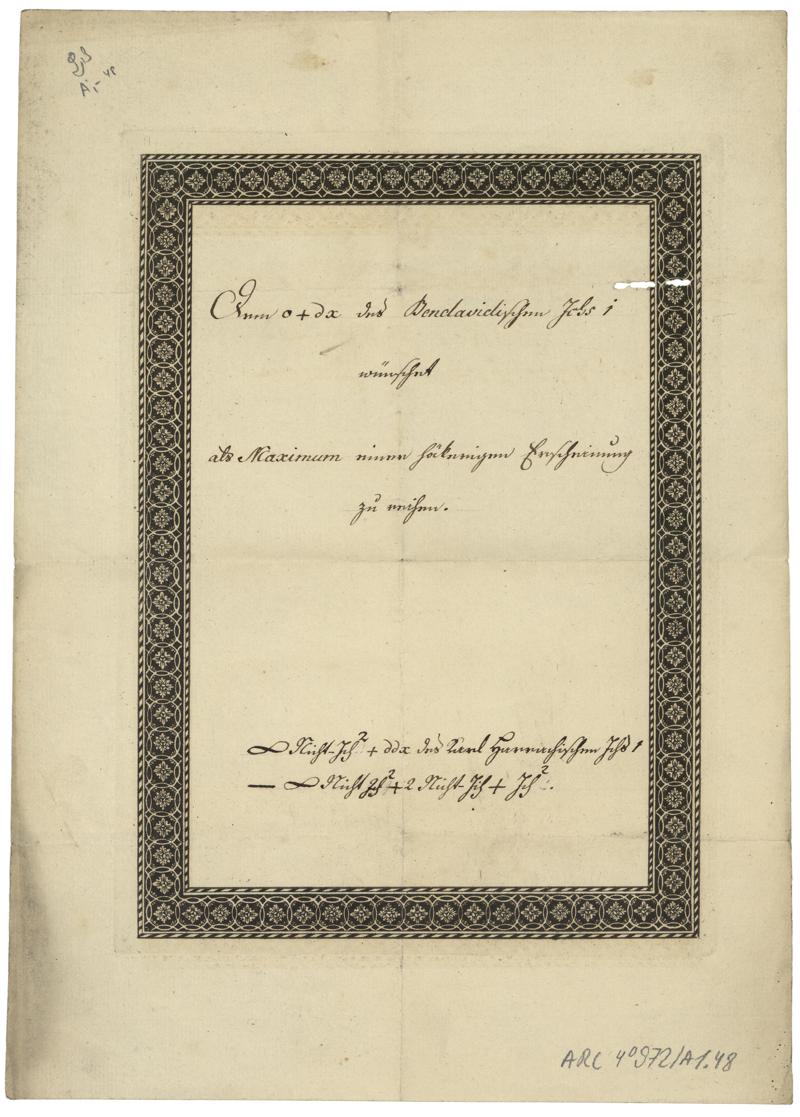 Dem o + dx des Bendavidischen Ichs 1
wünschet
als Maximum einer höherigen Erscheinung
zu
∞ Nicht-Ich² + ddx des Karl Harrachischen Ichs 1
— ∞ Nicht Ich² + 2 Nicht-Ich + Ich².
ARC 4° 972/A1.48